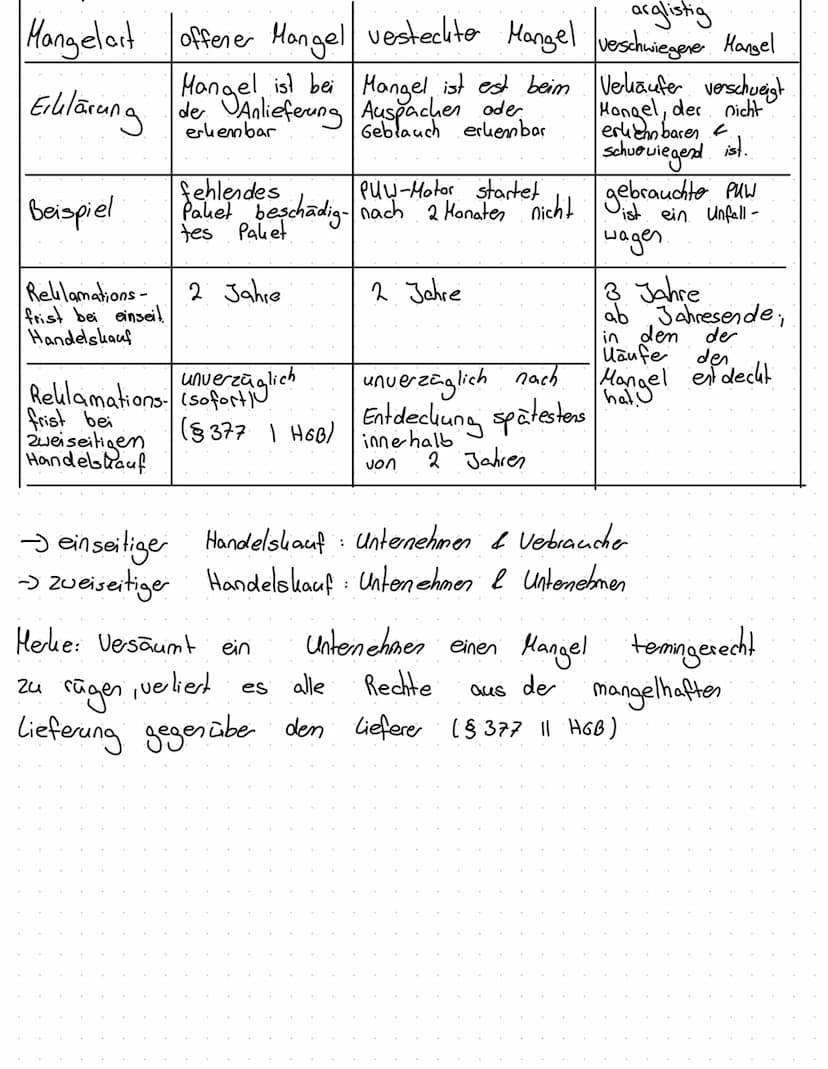 Mangelart
offener Mangel
vesteckter Mangel
arglistig
verschwiegener Mangel
Erklärung
Mangel ist bei
der Anlieferung
erkennbar
Mangel ist est beim
Auspacken oder
Geblauch erkennbar
Verkäufer verschweigt
Mangel, der nicht
erkennbaren &
schwewiegend ist.
Beispiel
fehlendes
Paket beschädig-
tes Paket
PKW-Motor startet
nach 2 Monaten nicht
gebrauchte PKW
ist ein Unfall-
wagen
Reklamations-
frist bei einseit.
Handelskauf
2 Jahre
2 Jahre
3 Jahre
ab Jahresende,
in dem der
Käufer den
Mangel entdeckt
hat.
Reklamations-
frist bei
zweiseitigen
Handelskauf
unverzüglich
(sofort)
(§377 I HGB)
unverzüglich nach
Entdeckung spätestens
innerhalb
von 2 Jahren
→ einseitiger Handelskauf: Unternehmen & Verbraucher
→ zweiseitiger Handelskauf: Untenehmen & Untenehmen
Merke: Versäumt ein Unternehmen einen Mangel temingerecht
zu rügen, verliert es alle Rechte aus der mangelhaften
Lieferung gegenüber den Lieferer (§377 II HGB)